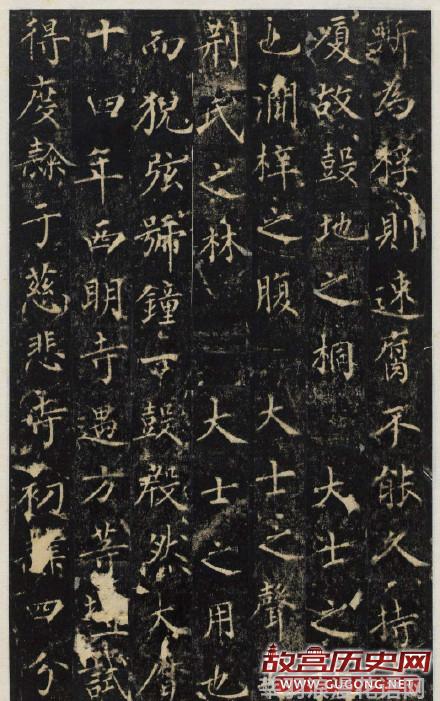 為桴則速腐不能久持
故鼓地之桐 大士之
也澗梓之腹 大士之聲
荆氏之林 大士之用也
而猊弦號鐘一鼓殷然大唐
十四年西明寺遇方等壇試
得度隸于慈悲寺初隸四分
故宫历史网
WWW.GUGONG.NET